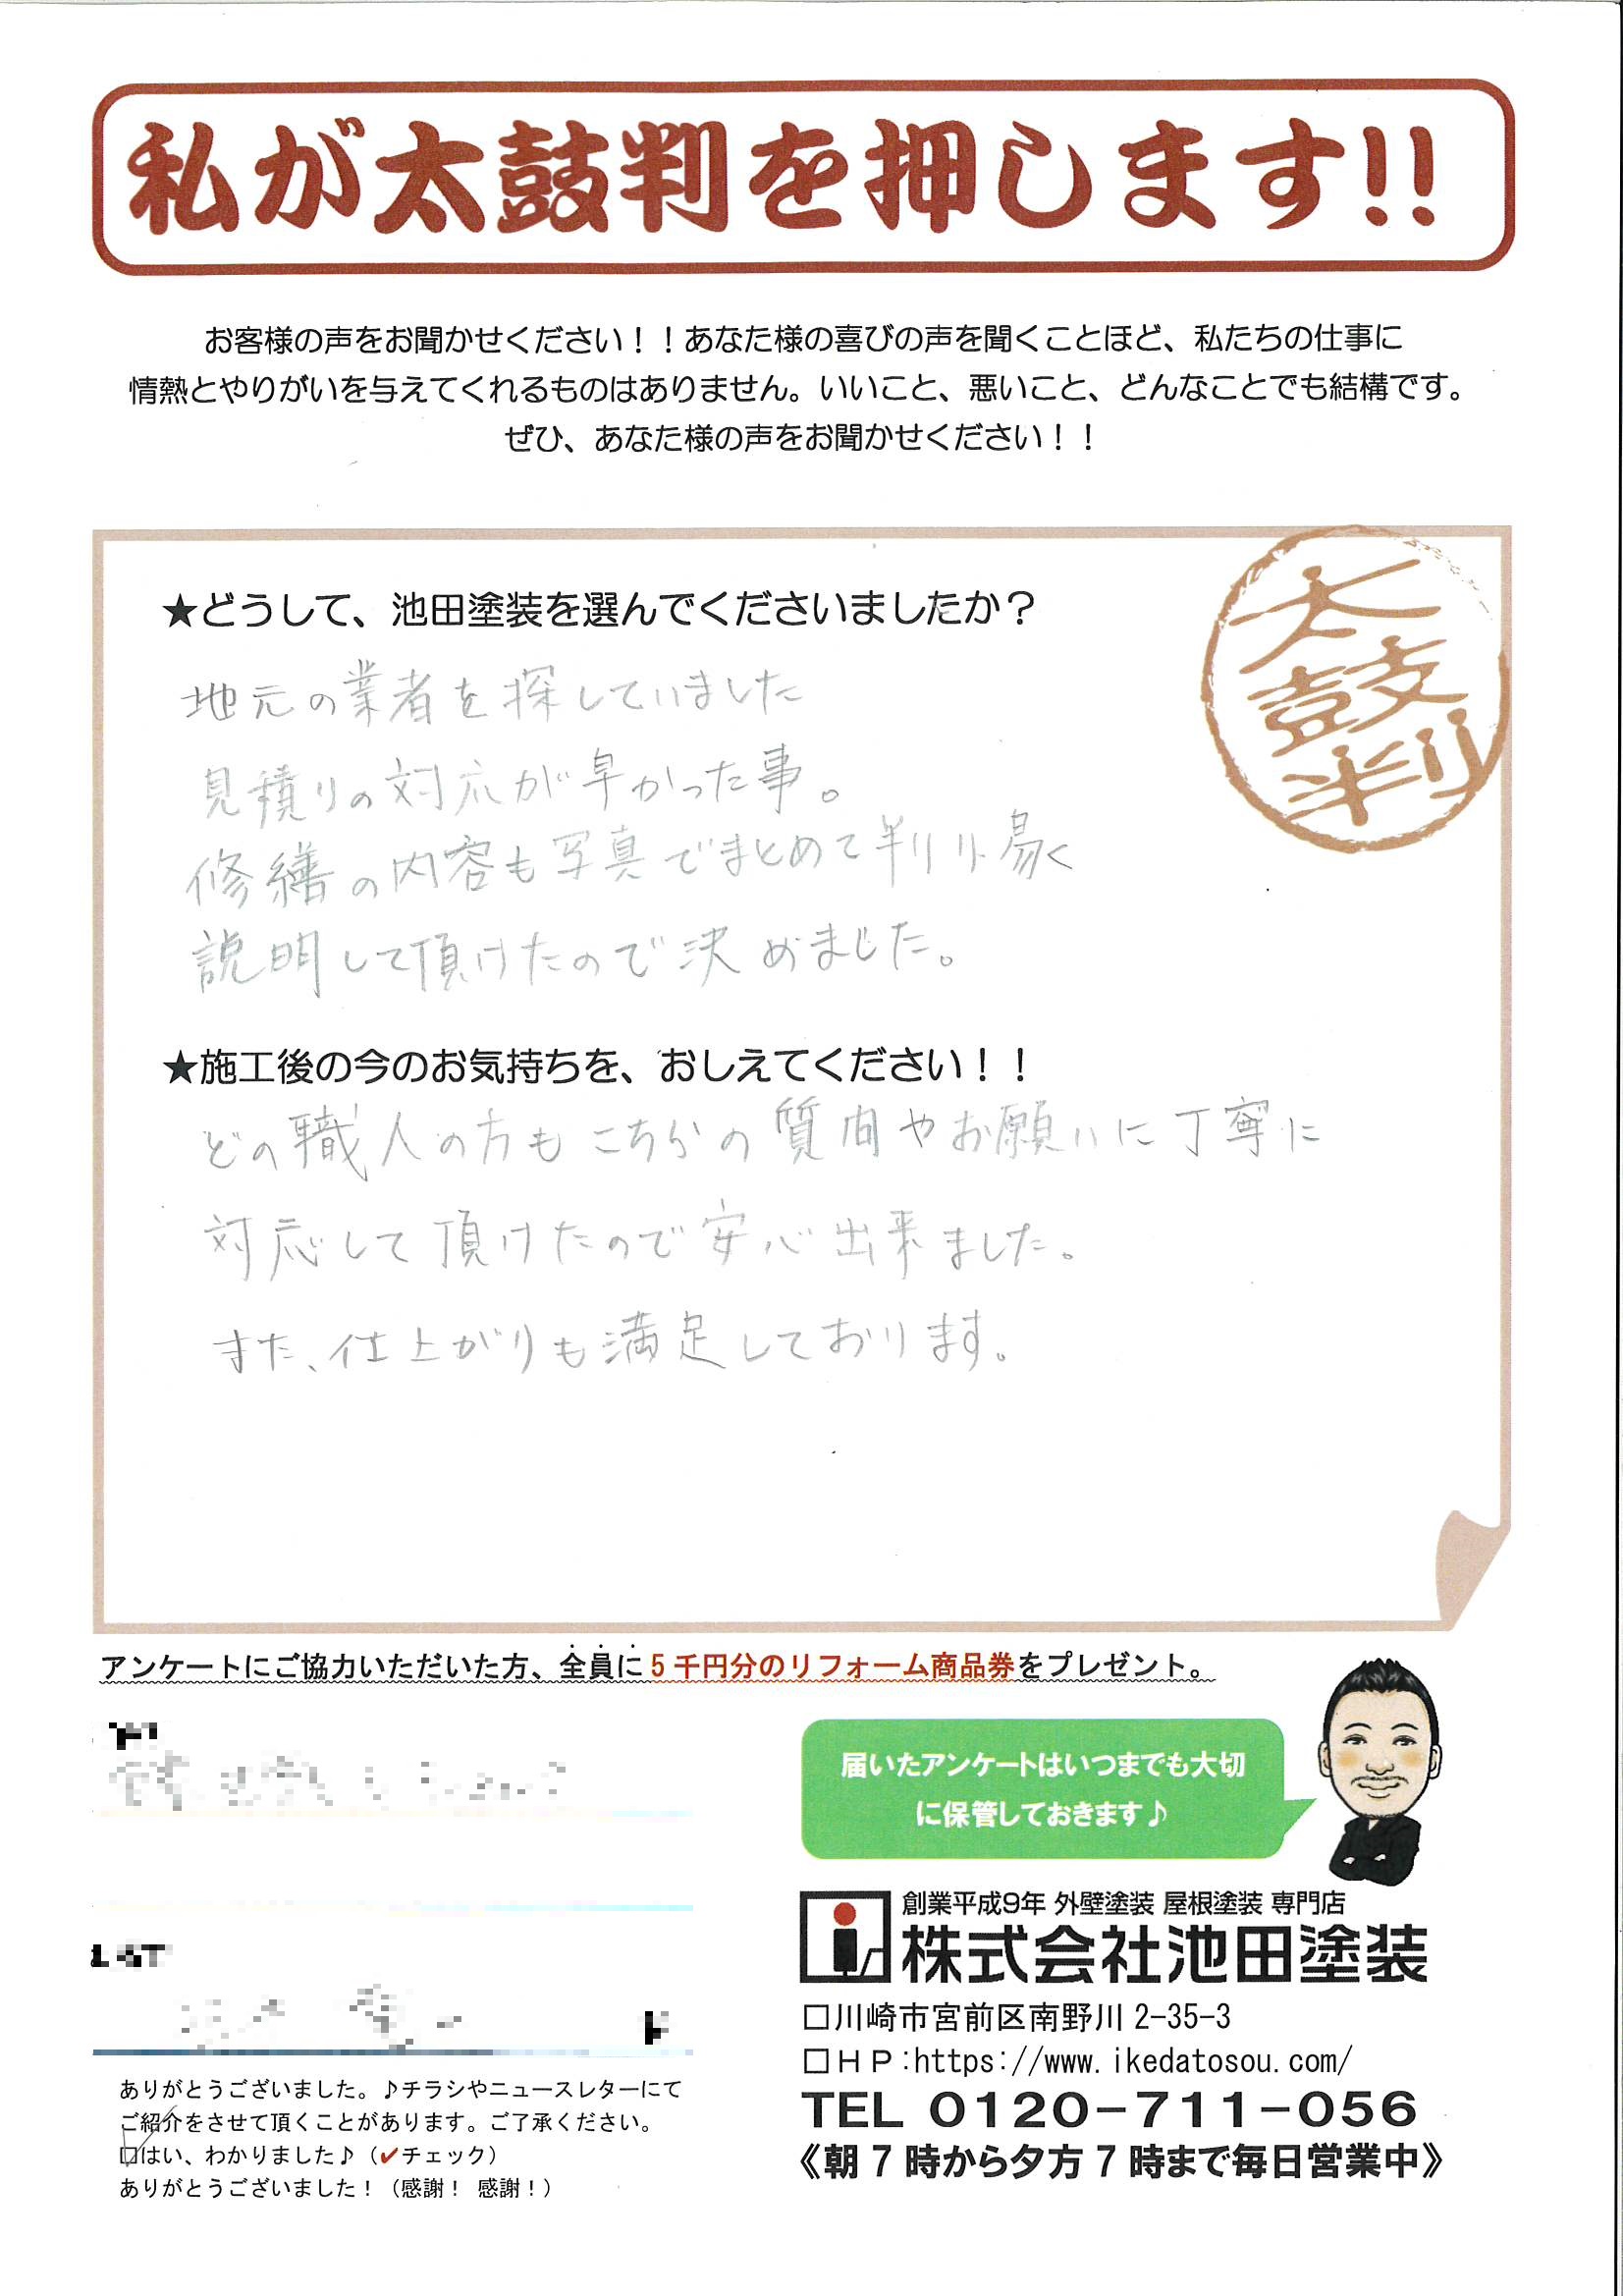 私が太鼓判を押します!!
お客様の声をお聞かせください！！あなた様の喜びの声を聞くことほど、私たちの仕事に
情熱とやりがいを与えてくれるものはありません。いいこと、悪いこと、どんなことでも結構です。
ぜひ、あなた様の声をお聞かせください！！
太鼓判
★どうして、池田塗装を選んでくださいましたか？
地元の業者を探していました
見積りの対応が早かった事。
修繕の内容も写真でまとめて判り易く
説明して頂けたので決めました。
★施工後の今のお気持ちを、おしえてください！！
どの職人の方もこちらの質問やお願いに丁寧に
対応して頂けたので安心出来ました。
また、仕上がりも満足しております。
アンケートにご協力いただいた方、全員に5千円分のリフォーム商品券をプレゼント。
届いたアンケートはいつまでも大切
に保管しておきます♪
創業平成9年 外壁塗装 屋根塗装 専門店
株式会社池田塗装
□川崎市宮前区南野川2-35-3
□ＨＰ:https://www.ikedatosou.com/
TEL 0120-711-056
《朝7時から夕方7時まで毎日営業中》
ありがとうございました。♪チラシやニュースレターにて
ご紹介をさせて頂くことがあります。ご了承ください。
□はい、わかりました♪（✔チェック）
ありがとうございました！（感謝！ 感謝！）